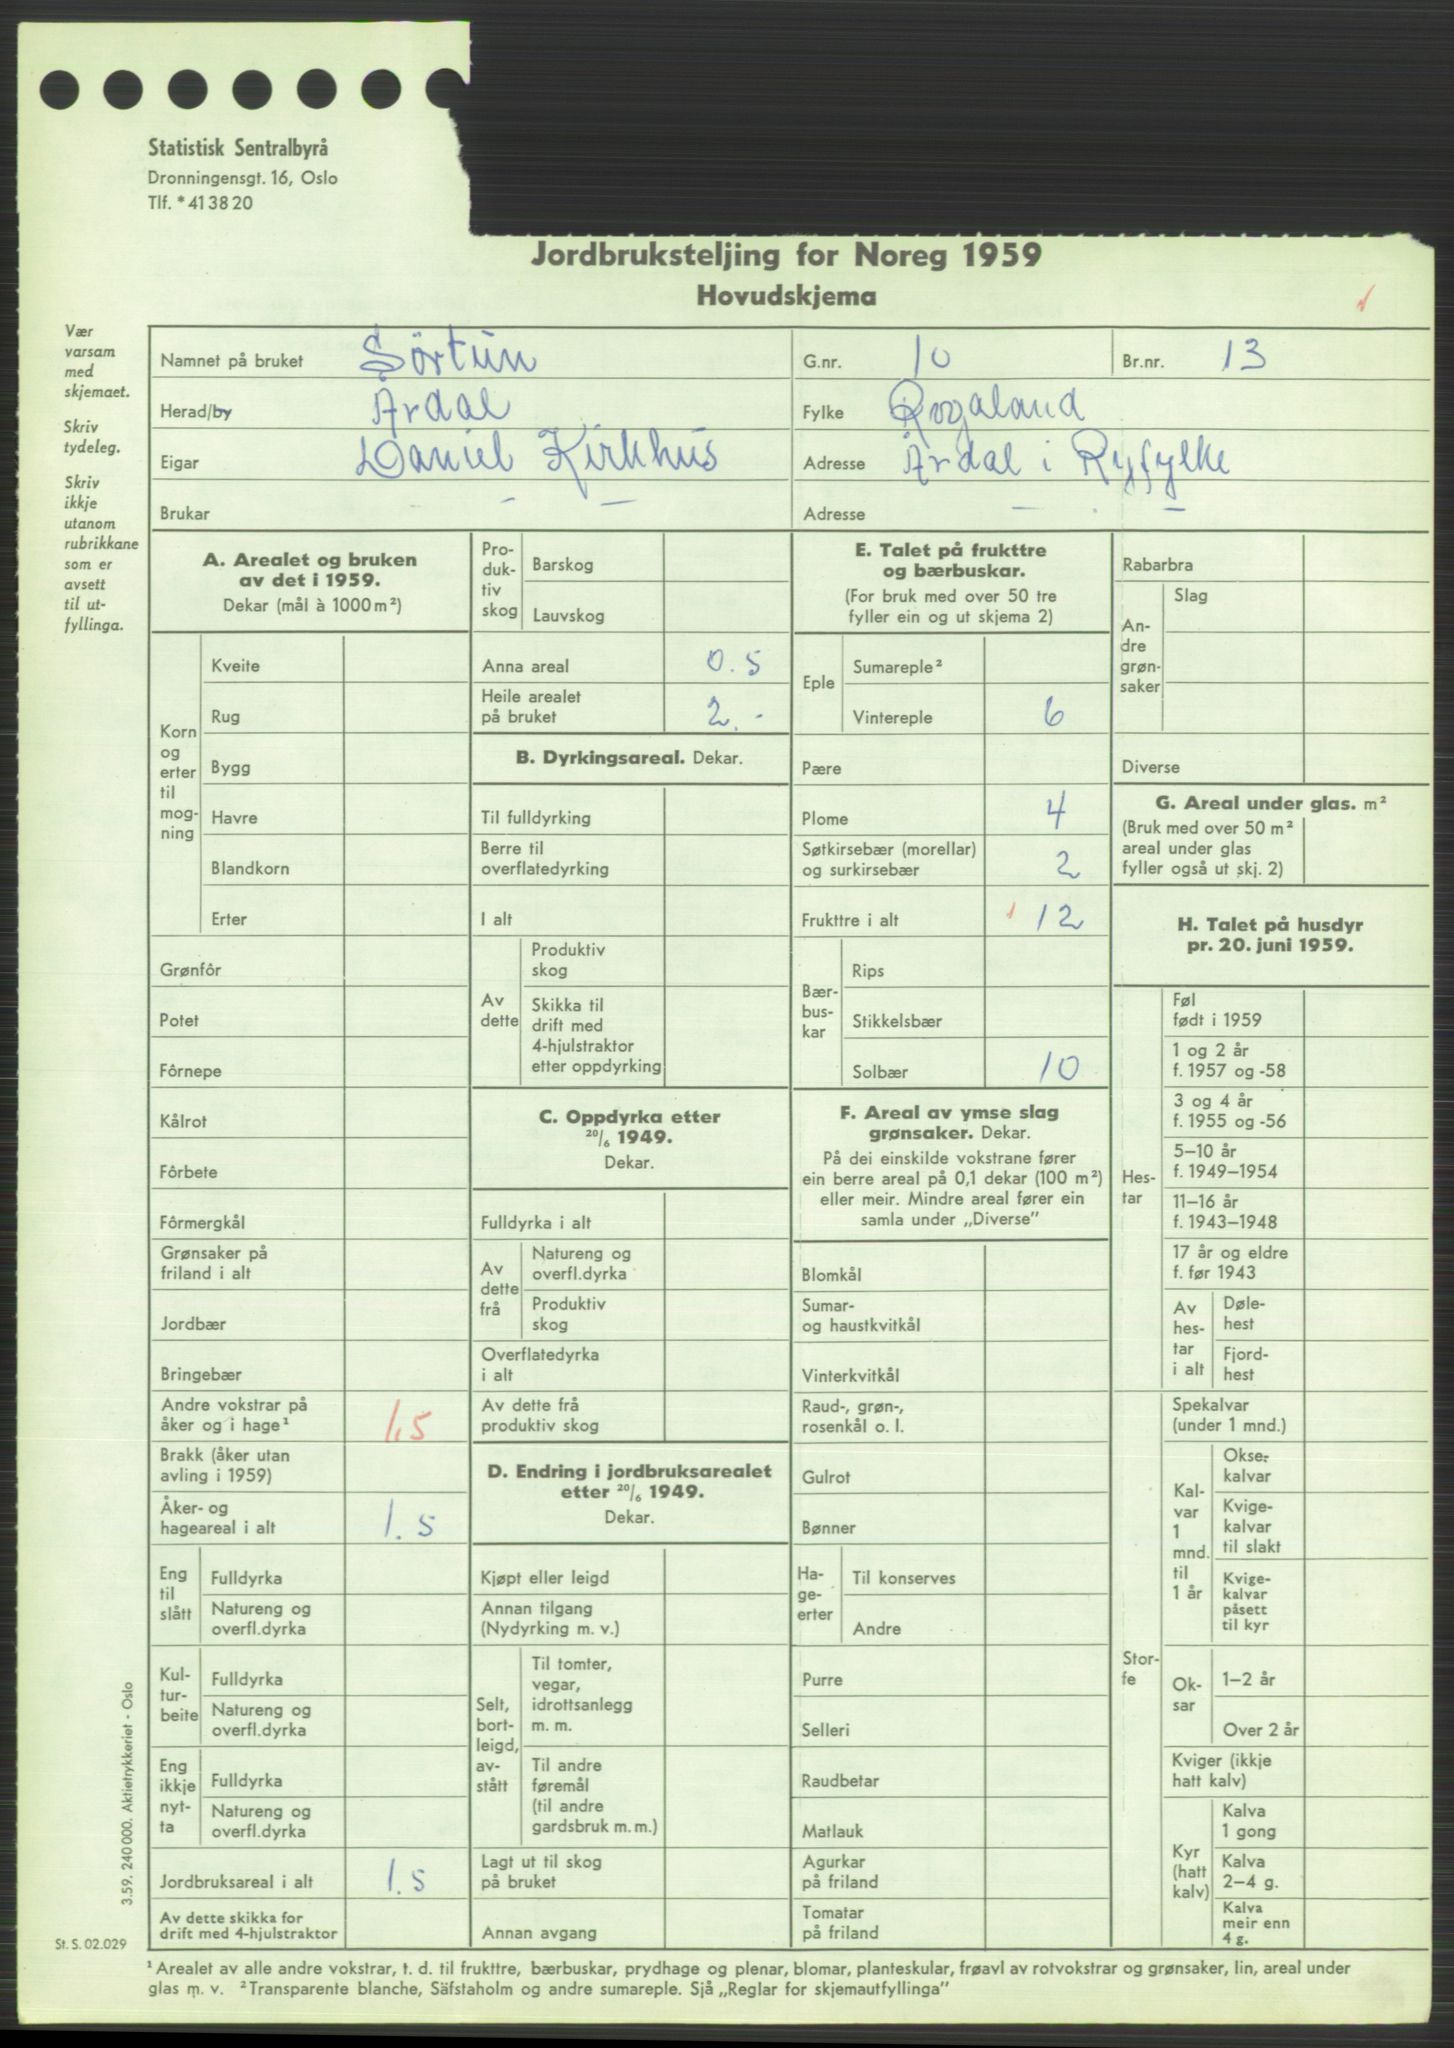 Statistisk Sentralbyrå
Dronningensgt. 16, Oslo
Tlf. *41 38 20
Jordbruksteljing for Noreg 1959
Hovudskjema
Vær varsam med skjemaet.
Skriv tydeleg.
Skriv ikkje utanom rubrikkane som er avsett til utfyllinga.
Namnet på bruket Sörtun G.nr. 10 Br.nr. 13
Herad/by Årdal Fylke Rogaland
Eigar Daniel Kirkhus Adresse Årdal i Ryfylke
Brukar - — Adresse — . —
A. Arealet og bruken
av det i 1959.
Dekar (mål à 1000 m²)
Korn og erter til mogning
Kveite
Rug
Bygg
Havre
Blandkorn
Erter
Grønfôr
Potet
Fôrnepe
Kålrot
Fôrbete
Fôrmergkål
Grønsaker på
friland i alt
Jordbær
Bringebær
Andre vokstrar på
åker og i hage¹ 1,5
Brakk (åker utan
avling i 1959)
Åker- og
hageareal i alt 1.5
Eng til slått
Fulldyrka
Natureng og
overfl.dyrka
Kulturbeite
Fulldyrka
Natureng og
overfl.dyrka
Eng ikkje nytta
Fulldyrka
Natureng og
overfl.dyrka
Jordbruksareal i alt 1.5
Av dette skikka for
drift med 4-hjulstraktor
Produktiv skog
Barskog
Lauvskog
Anna areal 0.5
Heile arealet
på bruket 2.-
B. Dyrkingsareal. Dekar.
Til fulldyrking
Berre til
overflatedyrking
I alt
Av dette
Produktiv
skog
Skikka til
drift med
4-hjulstraktor
etter oppdyrking
C. Oppdyrka etter
20/6 1949.
Dekar.
Fulldyrka i alt
Av dette frå
Natureng og
overfl.dyrka
Produktiv
skog
Overflatedyrka
i alt
Av dette frå
produktiv skog
D. Endring i jordbruksarealet
etter 20/6 1949.
Dekar.
Kjøpt eller leigd
Annan tilgang
(Nydyrking m. v.)
Selt, bortleigd, avstått
Til tomter,
vegar,
idrottsanlegg
m. m.
Til andre
føremål
(til andre
gardsbruk m. m.)
Lagt ut til skog
på bruket
Annan avgang
E. Talet på frukttre
og bærbuskar.
(For bruk med over 50 tre
fyller ein og ut skjema 2)
Eple
Sumareple²
Vintereple 6
Pære
Plome 4
Søtkirsebær (morellar)
og surkirsebær 2
Frukttre i alt 12
Bærbuskar
Rips
Stikkelsbær
Solbær 10
F. Areal av ymse slag
grønsaker. Dekar.
På dei einskilde vokstrane fører
ein berre areal på 0,1 dekar (100 m²)
eller meir. Mindre areal fører ein
samla under „Diverse”
Blomkål
Sumar-
og haustkvitkål
Vinterkvitkål
Raud-, grøn-,
rosenkål o. l.
Gulrot
Bønner
Hageerter
Til konserves
Andre
Purre
Selleri
Raudbetar
Matlauk
Agurkar
på friland
Tomatar
på friland
Rabarbra
Andre grønsaker
Slag
Diverse
G. Areal under glas. m²
(Bruk med over 50 m²
areal under glas
fyller også ut skj. 2)
H. Talet på husdyr
pr. 20. juni 1959.
Hestar
Føl
født i 1959
1 og 2 år
f. 1957 og -58
3 og 4 år
f. 1955 og -56
5–10 år
f. 1949–1954
11–16 år
f. 1943–1948
17 år og eldre
f. før 1943
Av hestar i alt
Dølehest
Fjordhest
Storfe
Spekalvar
(under 1 mnd.)
Kalvar 1 mnd. til 1 år
Oksekalvar
Kvigekalvar
til slakt
Kvigekalvar
påsett
til kyr
Oksar
1–2 år
Over 2 år
Kviger (ikkje
hatt kalv)
Kyr (hatt kalv)
Kalva
1 gong
Kalva
2–4 g.
Kalva
meir enn
4 g.
3.59. 240 000. Aktietrykkeriet - Oslo
St. S. 02.029
¹ Arealet av alle andre vokstrar, t. d. til frukttre, bærbuskar, prydhage og plenar, blomar, planteskular, frøavl av rotvokstrar og grønsaker, lin, areal under
glas m. v. ² Transparente blanche, Säfstaholm og andre sumareple. Sjå „Reglar for skjemautfyllinga”